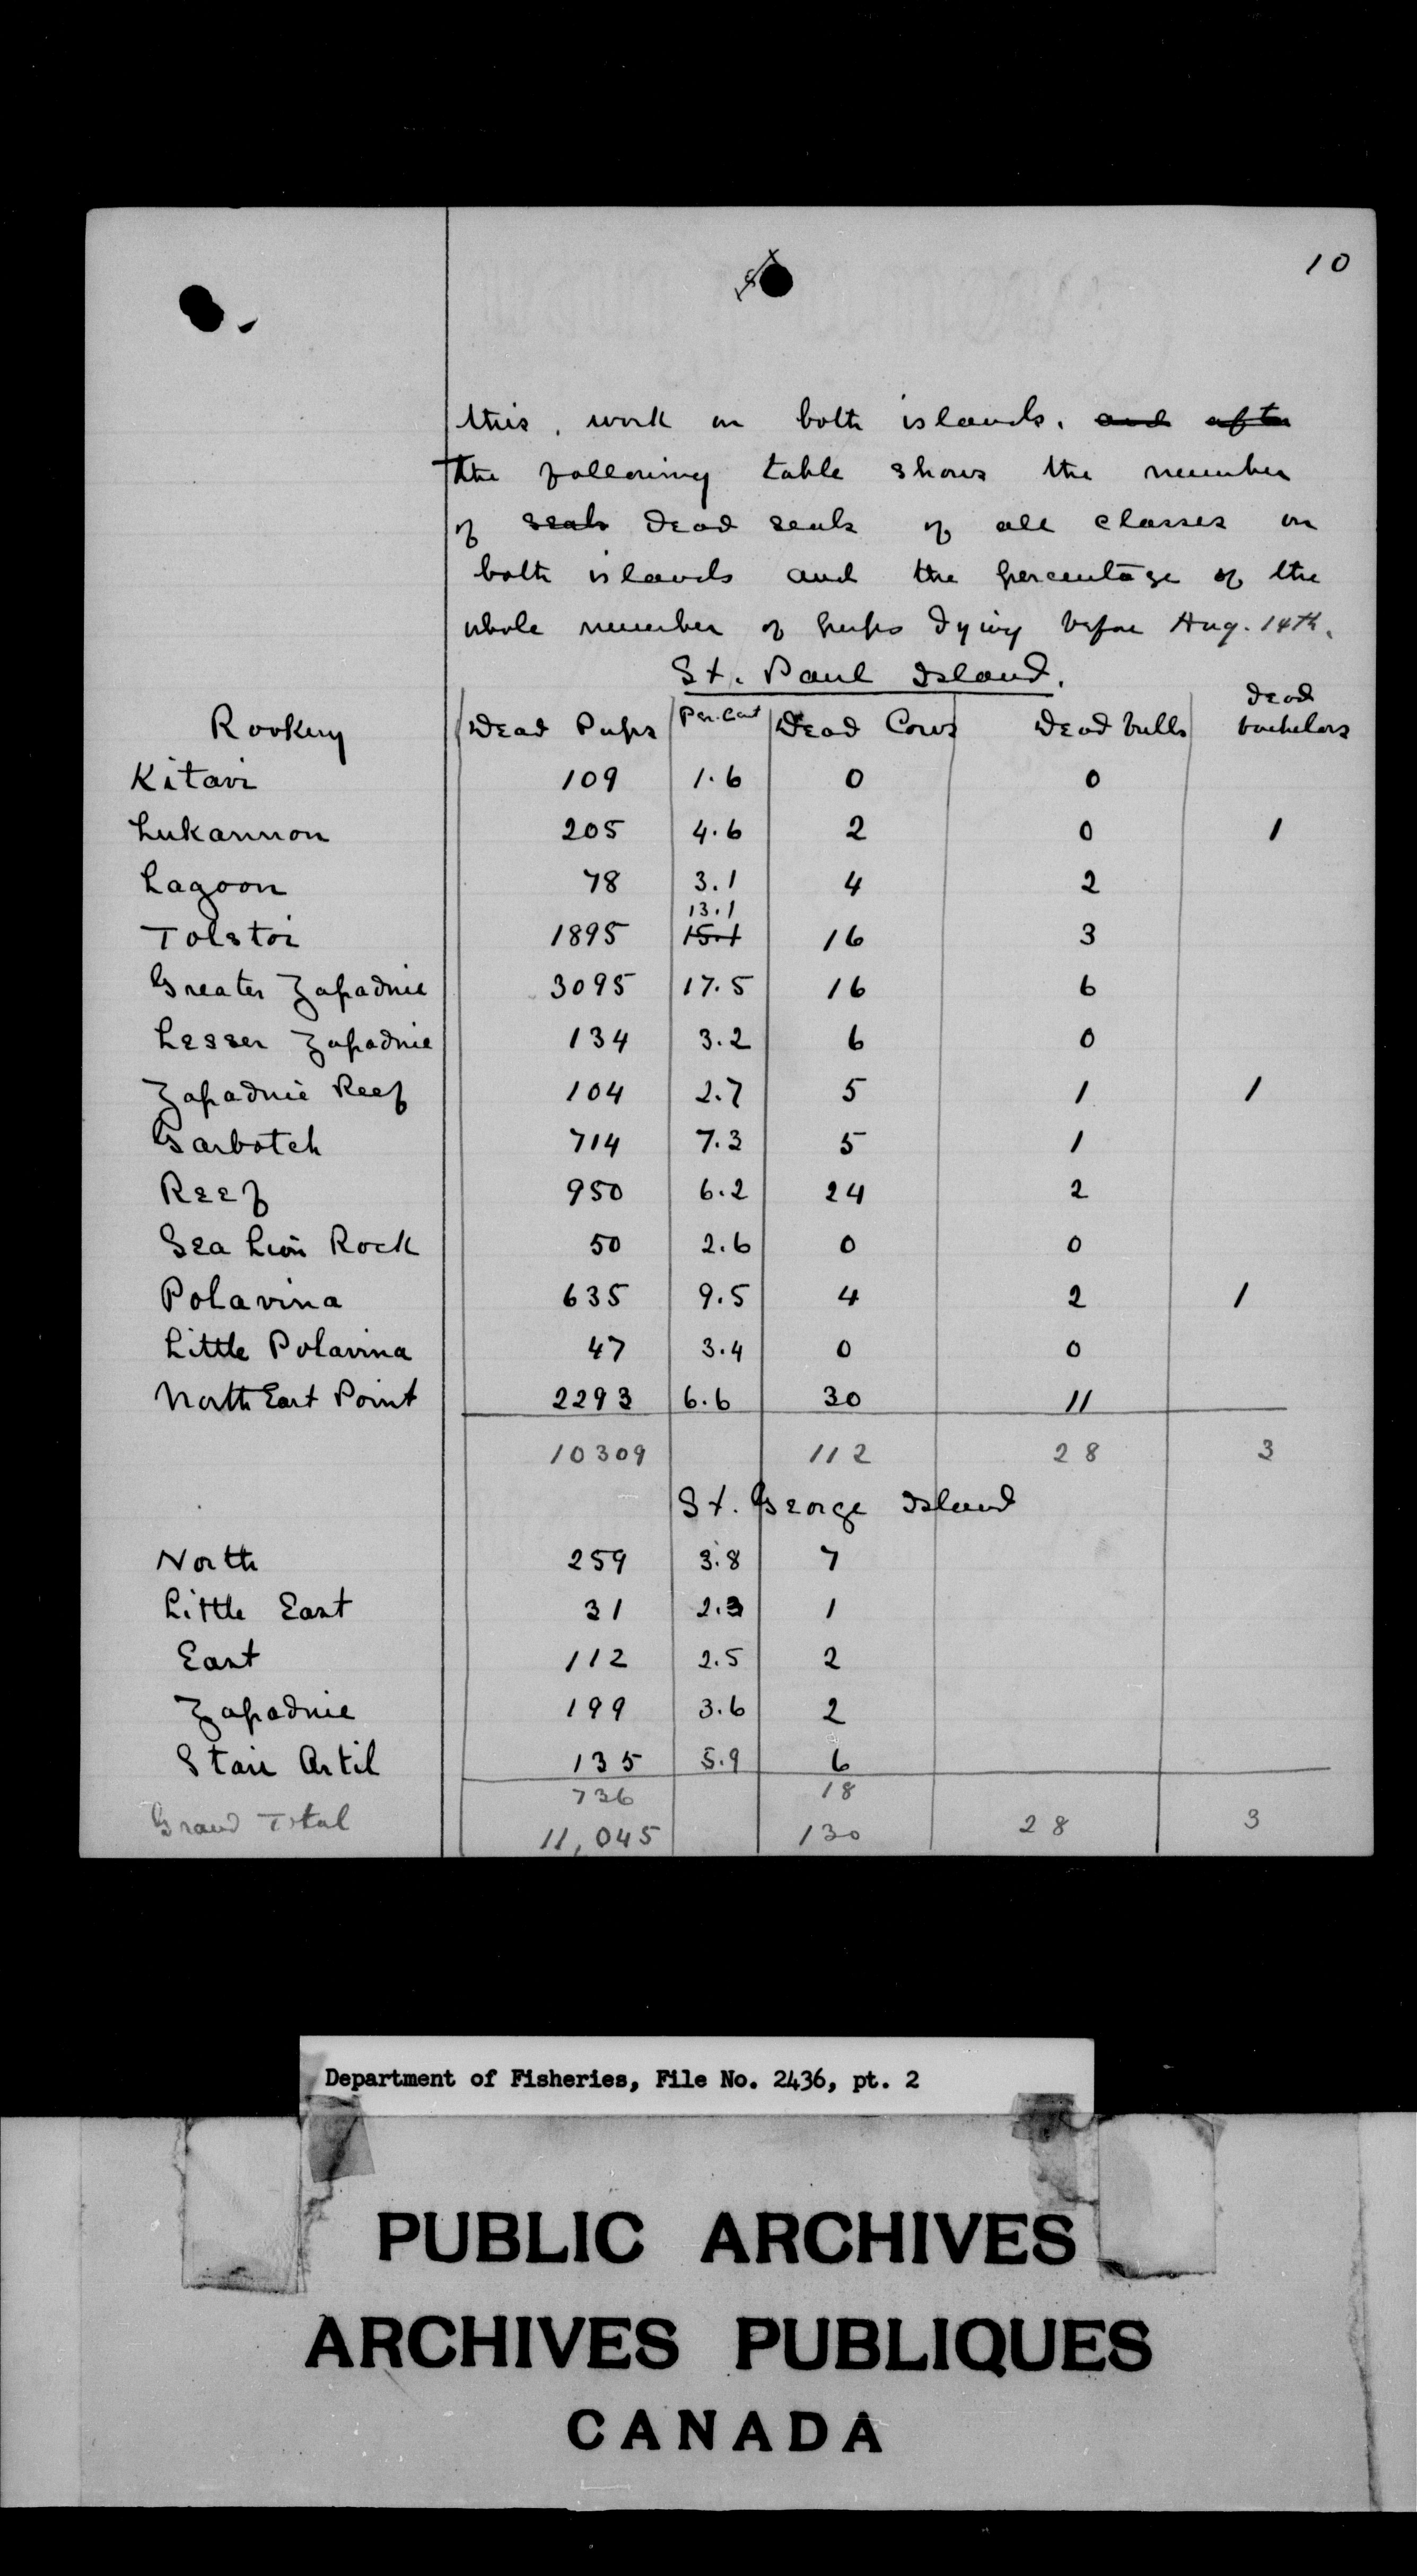 10
this work on both islands. and after
The following table shows the number
of seals dead seals of all classes on
both islands and the percentage of the
whole number of pups dying before Aug. 14th.
St. Paul Island.
Rookery Dead Pups Per. Cent Dead Cows Dead bulls Dead bachelors
Kitavi 109 1.6 0 0
Lukannon 205 4.6 2 0 1
Lagoon 78 3.1 4 2
13.1
Tolstoi 1895 15.1 16 3
Greater Zapadnie 3095 17.5 16 6
Lesser Zapadnie 134 3.2 6 0
Zapadnie Reef 104 2.7 5 1 1
Garbotch 714 7.3 5 1
Reef 950 6.2 24 2
Sea Lion Rock 50 2.6 0 0
Polavina 635 9.5 4 2 1
Little Polavina 47 3.4 0 0
North East Point 2293 6.6 30 11
10309 112 28 3
St. George Island
North 259 3.8 7
Little East 31 2.3 1
East 112 2.5 2
Zapadnie 199 3.6 2
Starie Artil 135 5.9 6
736 18
Grand Total 11,045 130 28 3
Department of Fisheries, File No. 2436, pt. 2
PUBLIC ARCHIVES
ARCHIVES PUBLIQUES
CANADA